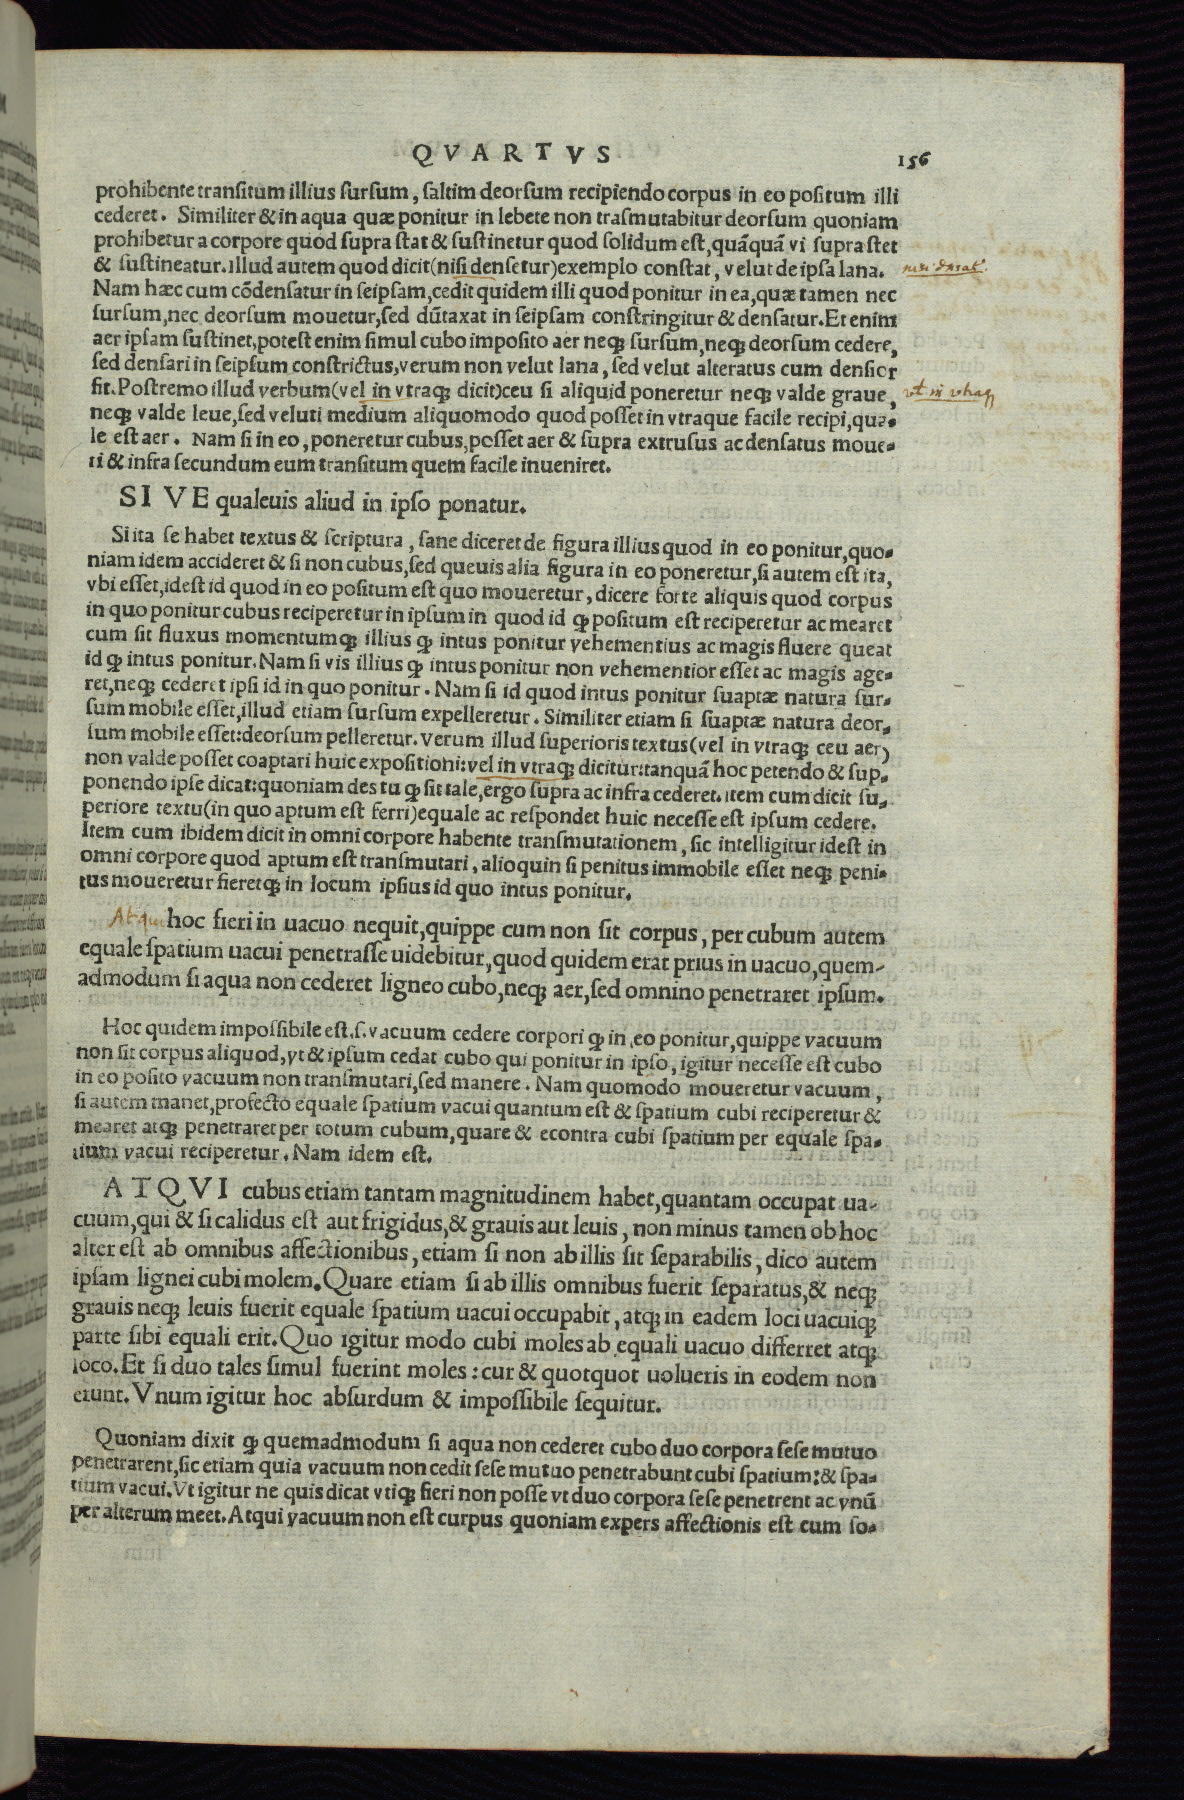 QVARTVS 156
prohibente transitum illius sursum, saltim deorsum recipiendo corpus in eo positum illi
cederet. Similiter & in aqua quæ ponitur in lebete non trasmutabitur deorsum quoniam
prohibetur a corpore quod supra stat & sustinetur quod solidum est, quãquã vi supra stet
& sustineatur. illud autem quod dicit (nisi densetur) exemplo constat, velut de ipsa lana.
Nam hæc cum cõdensatur in seipsam, cedit quidem illi quod ponitur in ea, quæ tamen nec
sursum, nec deorsum mouetur, sed dũtaxat in seipsam constringitur & densatur. Et enim
aer ipsam sustinet, potest enim simul cubo imposito aer neqꝫ sursum, neqꝫ deorsum cedere,
sed densari in seipsum constrictus, verum non velut lana, sed velut alteratus cum densior
fit. Postremo illud verbum (vel in vtraqꝫ dicit) ceu si aliquid poneretur neqꝫ valde graue,
neqꝫ valde leue, sed veluti medium aliquomodo quod posset in vtraque facile recipi, qua-
le est aer. Nam si in eo, poneretur cubus, posset aer & supra extrusus ac densatus moue-
ri & infra secundum eum transitum quem facile inueniret.
SIVE qualeuis aliud in ipso ponatur.
Si ita se habet textus & scriptura, sane diceret de figura illius quod in eo ponitur, quo-
niam idem accideret & si non cubus, sed queuis alia figura in eo poneretur, si autem est ita,
vbi esset, idest id quod in eo positum est quo moueretur, dicere forte aliquis quod corpus
in quo ponitur cubus reciperetur in ipsum in quod id ꝙ positum est reciperetur ac mearet
cum sit fluxus momentumqꝫ illius ꝙ intus ponitur vehementius ac magis fluere queat
id ꝙ intus ponitur. Nam si vis illius ꝙ intus ponitur non vehementior esset ac magis age-
ret, neqꝫ cederet ipsi id in quo ponitur. Nam si id quod intus ponitur suaptæ natura sur-
sum mobile esset, illud etiam sursum expelleretur. Similiter etiam si suaptæ natura deor-
sum mobile esset: deorsum pelleretur. verum illud superioris textus (vel in vtraqꝫ ceu aer)
non valde posset coaptari huic expositioni: vel in vtraqꝫ dicitur: tanquã hoc petendo & sup-
ponendo ipse dicat: quoniam des tu ꝙ sit tale, ergo supra ac infra cederet. item cum dicit su-
periore textu (in quo aptum est ferri) equale ac respondet huic necesse est ipsum cedere.
Item cum ibidem dicit in omni corpore habente transmutationem, sic intelligitur idest in
omni corpore quod aptum est transmutari, alioquin si penitus immobile esset neqꝫ peni-
tus moueretur fieretqꝫ in locum ipsius id quo intus ponitur.
Atqui hoc fieri in uacuo nequit, quippe cum non sit corpus, per cubum autem
equale spatium uacui penetrasse uidebitur, quod quidem erat prius in uacuo, quem-
admodum si aqua non cederet ligneo cubo, neqꝫ aer, sed omnino penetraret ipsum.
Hoc quidem impossibile est. s. vacuum cedere corpori ꝙ in eo ponitur, quippe vacuum
non sit corpus aliquod, vt & ipsum cedat cubo qui ponitur in ipso, igitur necesse est cubo
in eo posito vacuum non transmutari, sed manere. Nam quomodo moueretur vacuum,
si autem manet, profecto equale spatium vacui quantum est & spatium cubi reciperetur &
mearet atqꝫ penetraret per totum cubum, quare & econtra cubi spatium per equale spa-
tium vacui reciperetur. Nam idem est.
ATQVI cubus etiam tantam magnitudinem habet, quantam occupat ua-
cuum, qui & si calidus est aut frigidus, & grauis aut leuis, non minus tamen ob hoc
alter est ab omnibus affectionibus, etiam si non ab illis sit separabilis, dico autem
ipsam lignei cubi molem. Quare etiam si ab illis omnibus fuerit separatus, & neqꝫ
grauis neqꝫ leuis fuerit equale spatium uacui occupabit, atqꝫ in eadem loci uacuiqꝫ
parte sibi equali erit. Quo igitur modo cubi moles ab equali uacuo differret atqꝫ
loco. Et si duo tales simul fuerint moles: cur & quotquot uolueris in eodem non
erunt. Vnum igitur hoc absurdum & impossibile sequitur.
Quoniam dixit ꝙ quemadmodum si aqua non cederet cubo duo corpora sese mutuo
penetrarent, sic etiam quia vacuum non cedit sese mutuo penetrabunt cubi spatium: & spa-
tium vacui. Vt igitur ne quis dicat vtiqꝫ fieri non posse vt duo corpora sese penetrent ac vnũ
per alterum meet. Atqui vacuum non est curpus quoniam expers affectionis est cum so-